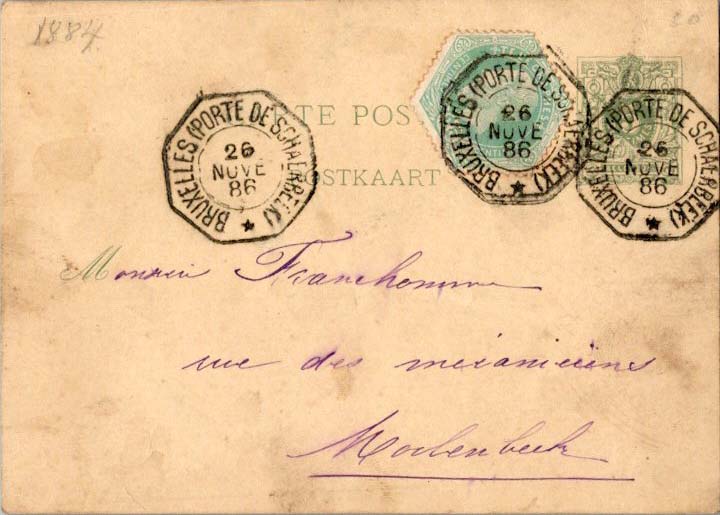 1884
BRUXELLES (PORTE DE SCHAERBEEK)
26
NOVE
86
BRUXELLES (PORTE DE SCHAERBEEK)
26
NOVE
86
BRUXELLES (PORTE DE SCHAERBEEK)
26
NOVE
86
TE POS
OSTKAART
Monsieur Franchomme
rue des mécaniciens
Molenbeek